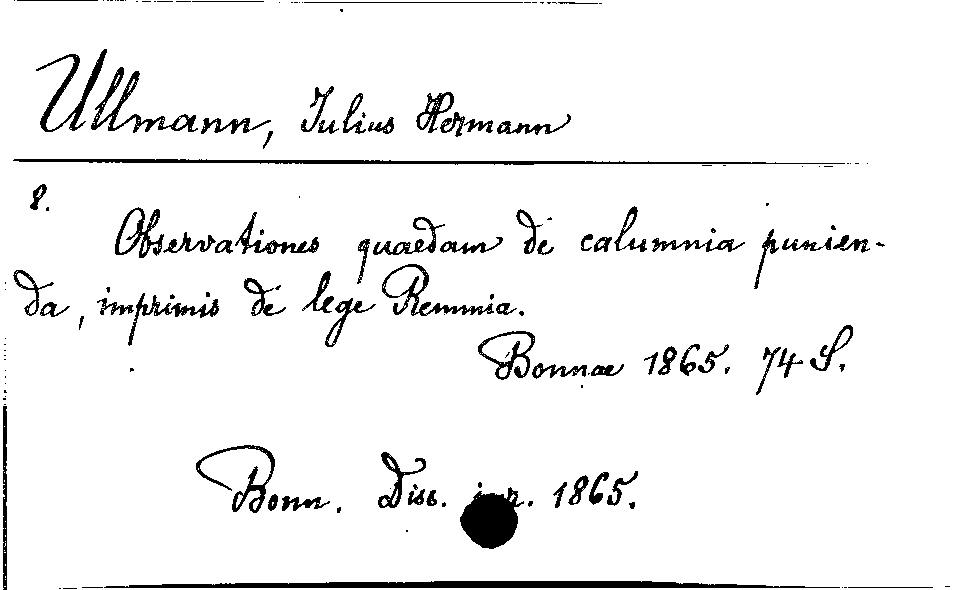 Ullmann, Julius Hermann
8.
Observationes quaedam de calumnia punien-
da, imprimis de lege Remmia.
Bonnae 1865. 74 S.
Bonn. Diss. jur. 1865.